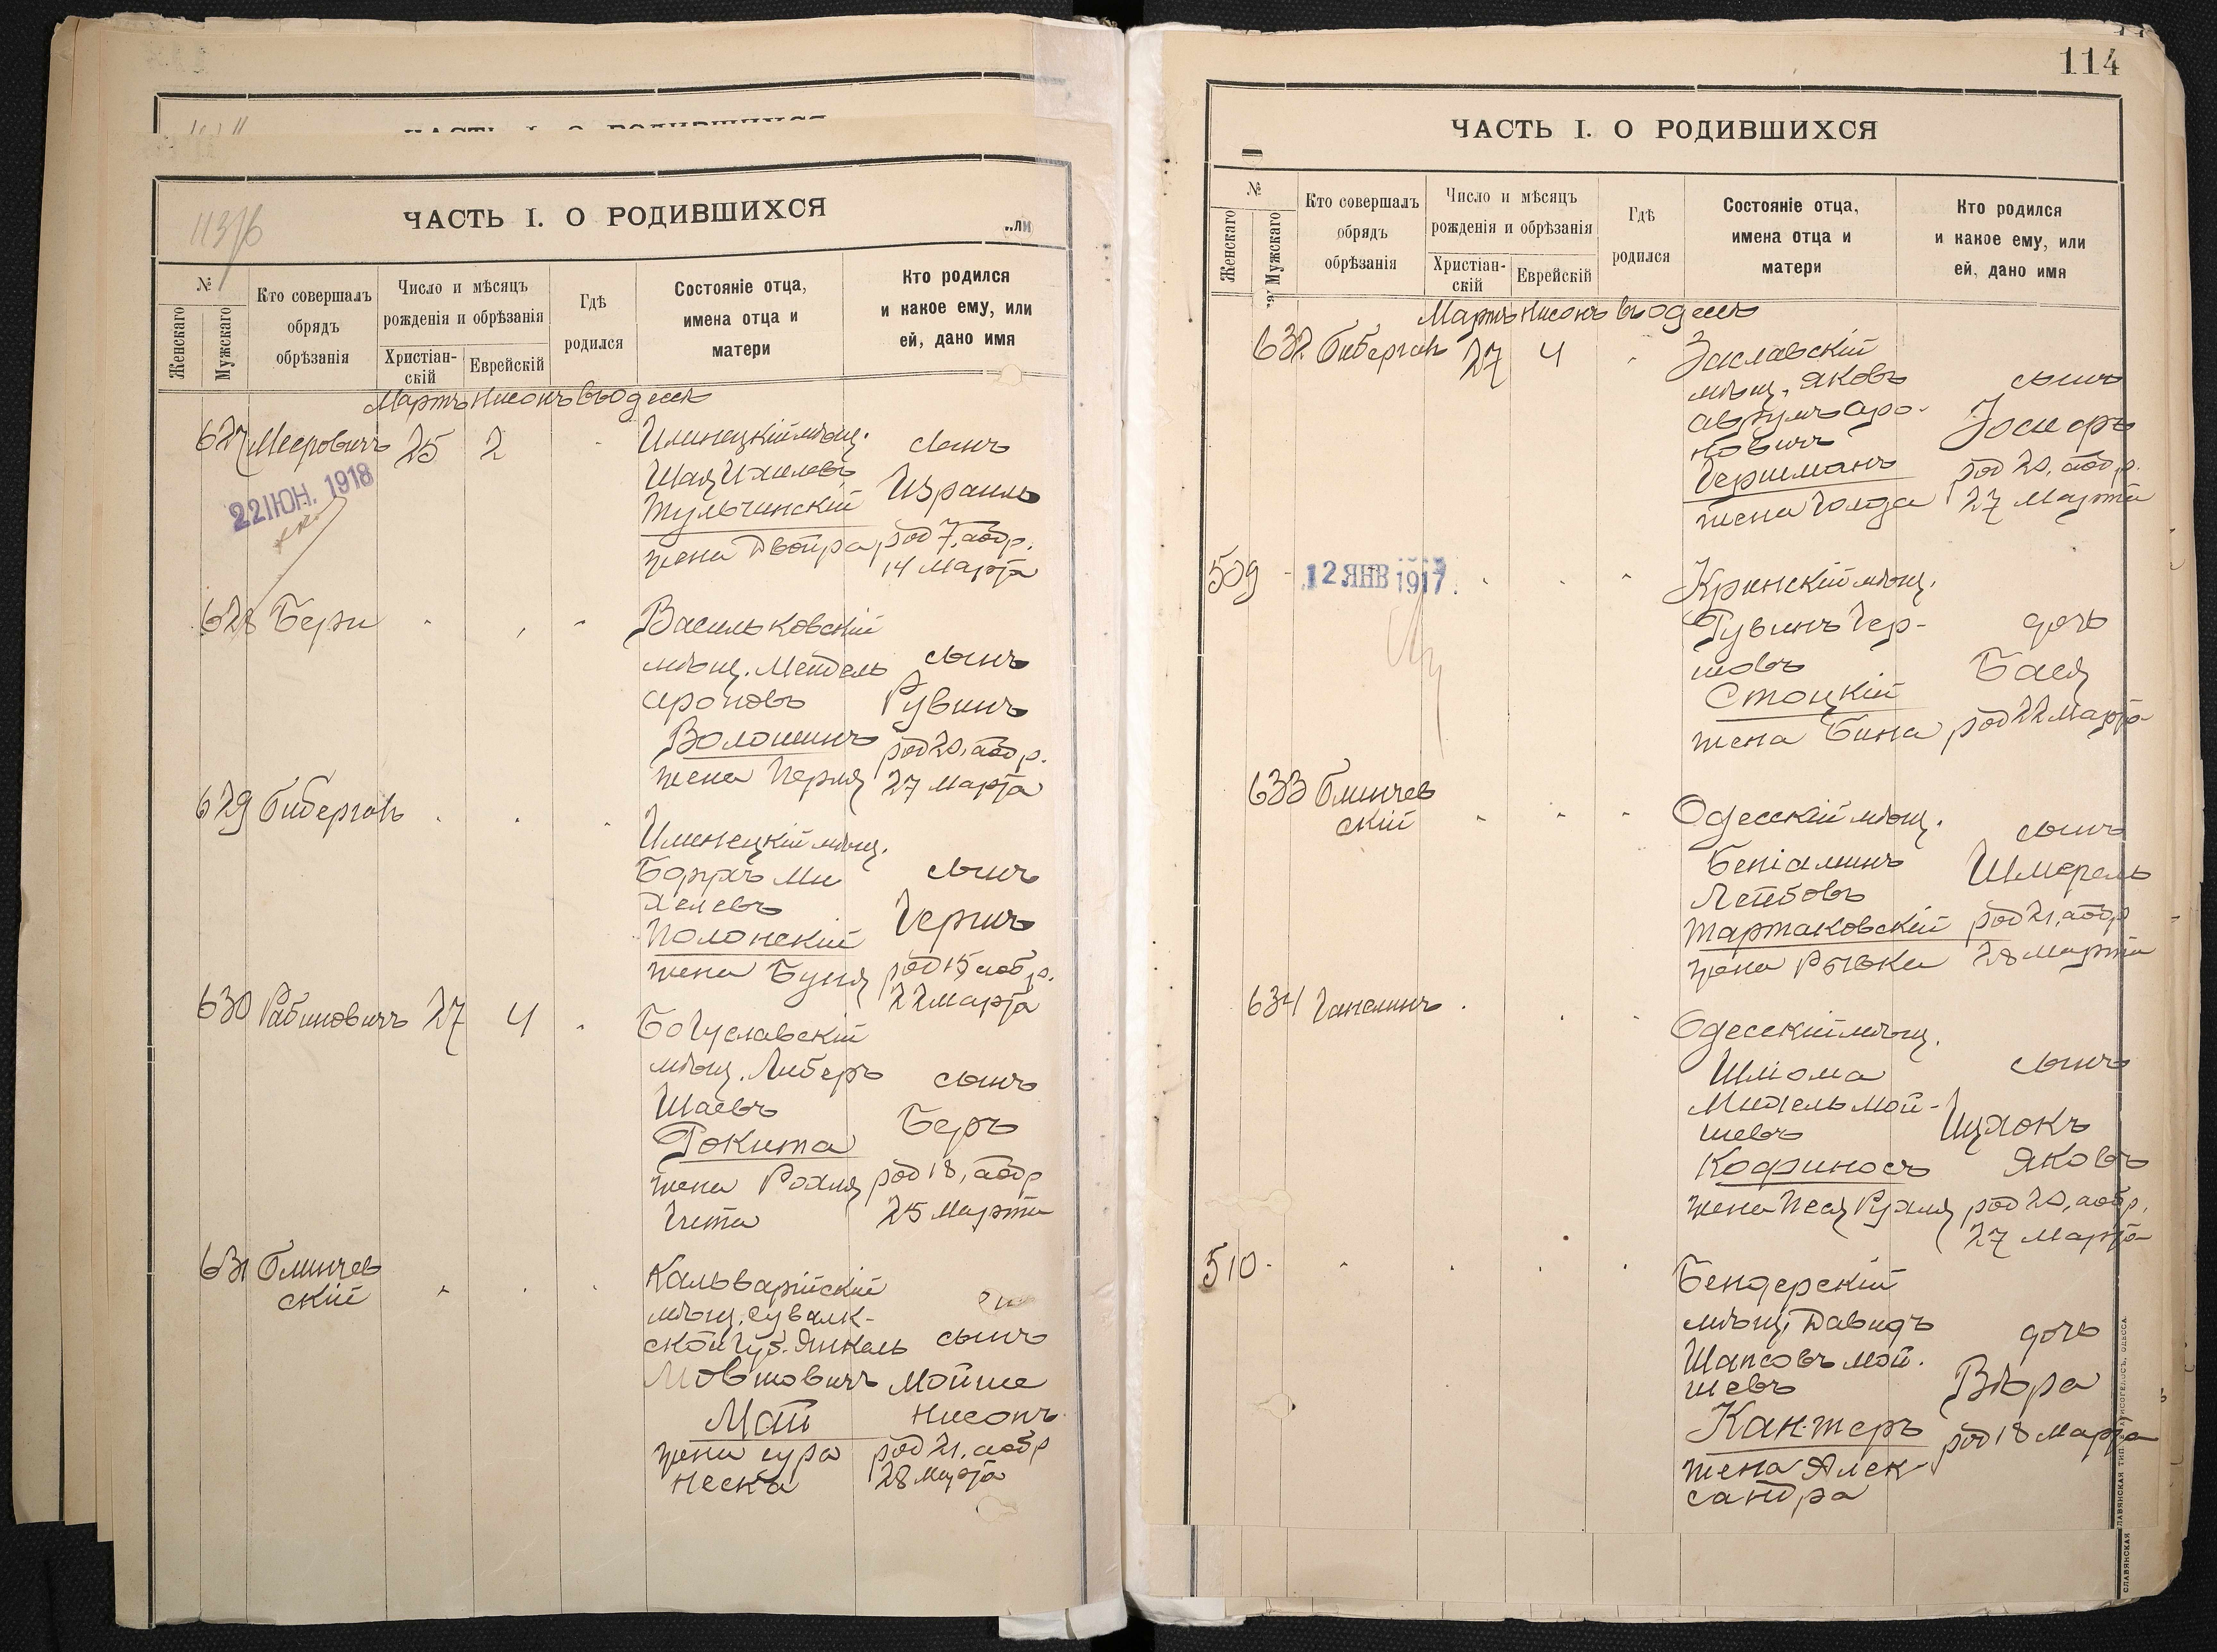 ЧАСТЬ I. О РОДИВШИХСЯ
113/б
ЧАСТЬ I. О РОДИВШИХСЯ
№
Женскаго
Мужскаго
Кто совершалъ
обрядъ
обрѣзанія
Число и мѣсяцъ
рожденія и обрѣзанія
Христіан-
скій
Еврейскій
Гдѣ
родился
Состояніе отца,
имена отца и
матери
Кто родился
и какое ему, или
ей, дано имя
Мартъ Нисонъ въ Одессѣ
627 Мееровичъ 25 2
22 ІЮН. 1918
Илинецкій мѣщ.
Шая Ихилевъ
Тульчинскій
жена Двойра
сынъ
Израиль
род 7, аобр.
14 Марта
628 Бери
Васильковскій
мѣщ. Мендель
Ароновъ
Волошинъ
жена Перля
сынъ
Рувинъ
род 20, аобр.
27 Марта
629 Бибергон
Илинецкій мѣщ.
Борухъ Ми
хелевъ
Полонскій
жена Буня
сынъ
Гершъ
род 15 аобр.
22 Марта
630 Рабиновичъ 27 4
Богуславскій
мѣщ. Либеръ
Шаевъ
Рокита
жена Рохля
Гита
сынъ
Беръ
род 18, аобр
25 Марта
631 Блинчев
скій
Кальварійскій
мѣщ. Сувалк-
ской губ. Янкель
Мовшовичъ
Май
жена Сура
Неска
сынъ
Мойше
Нисонъ
род 21, аобр
28 Марта
114
ЧАСТЬ I. О РОДИВШИХСЯ
№
Женскаго
Мужскаго
Кто совершалъ
обрядъ
обрѣзанія
Число и мѣсяцъ
рожденія и обрѣзанія
Христіан-
скій
Еврейскій
Гдѣ
родился
Состояніе отца,
имена отца и
матери
Кто родился
и какое ему, или
ей, дано имя
Мартъ Нисонъ въ Одессѣ
632 Бибергон 27 4
Заславскій
мѣщ. Яковъ
Аврумъ Аро-
новичъ
Гершманъ
жена Голда
сынъ
Іосифъ
род 20, аобр.
27 Марта
509
12 ЯНВ 1917
Кринскій мѣщ.
Рувинъ Гер-
шовъ
Стоцкій
жена Бина
дочь
Бася
род 22 Марта
633 Блинчев
скій
Одесскій мѣщ.
Беніаминъ
Лейбовъ
Тартаковскій
жена Рывка
сынъ
Шмерель
род 21, аобр
28 Марта
634 Ганелинъ
Одесскій мѣщ.
Шліома
Михель Мой-
шевъ
Кофиносъ
жена Песя Рухля
сынъ
Ицхокъ
Яковъ
род 20, аобр.
27 Марта
510
Бендерскій
мѣщ. Давидъ
Шапсовъ Мой-
шевъ
Кантеръ
жена Алек-
сандра
дочь
Вѣра
род 18 Марта